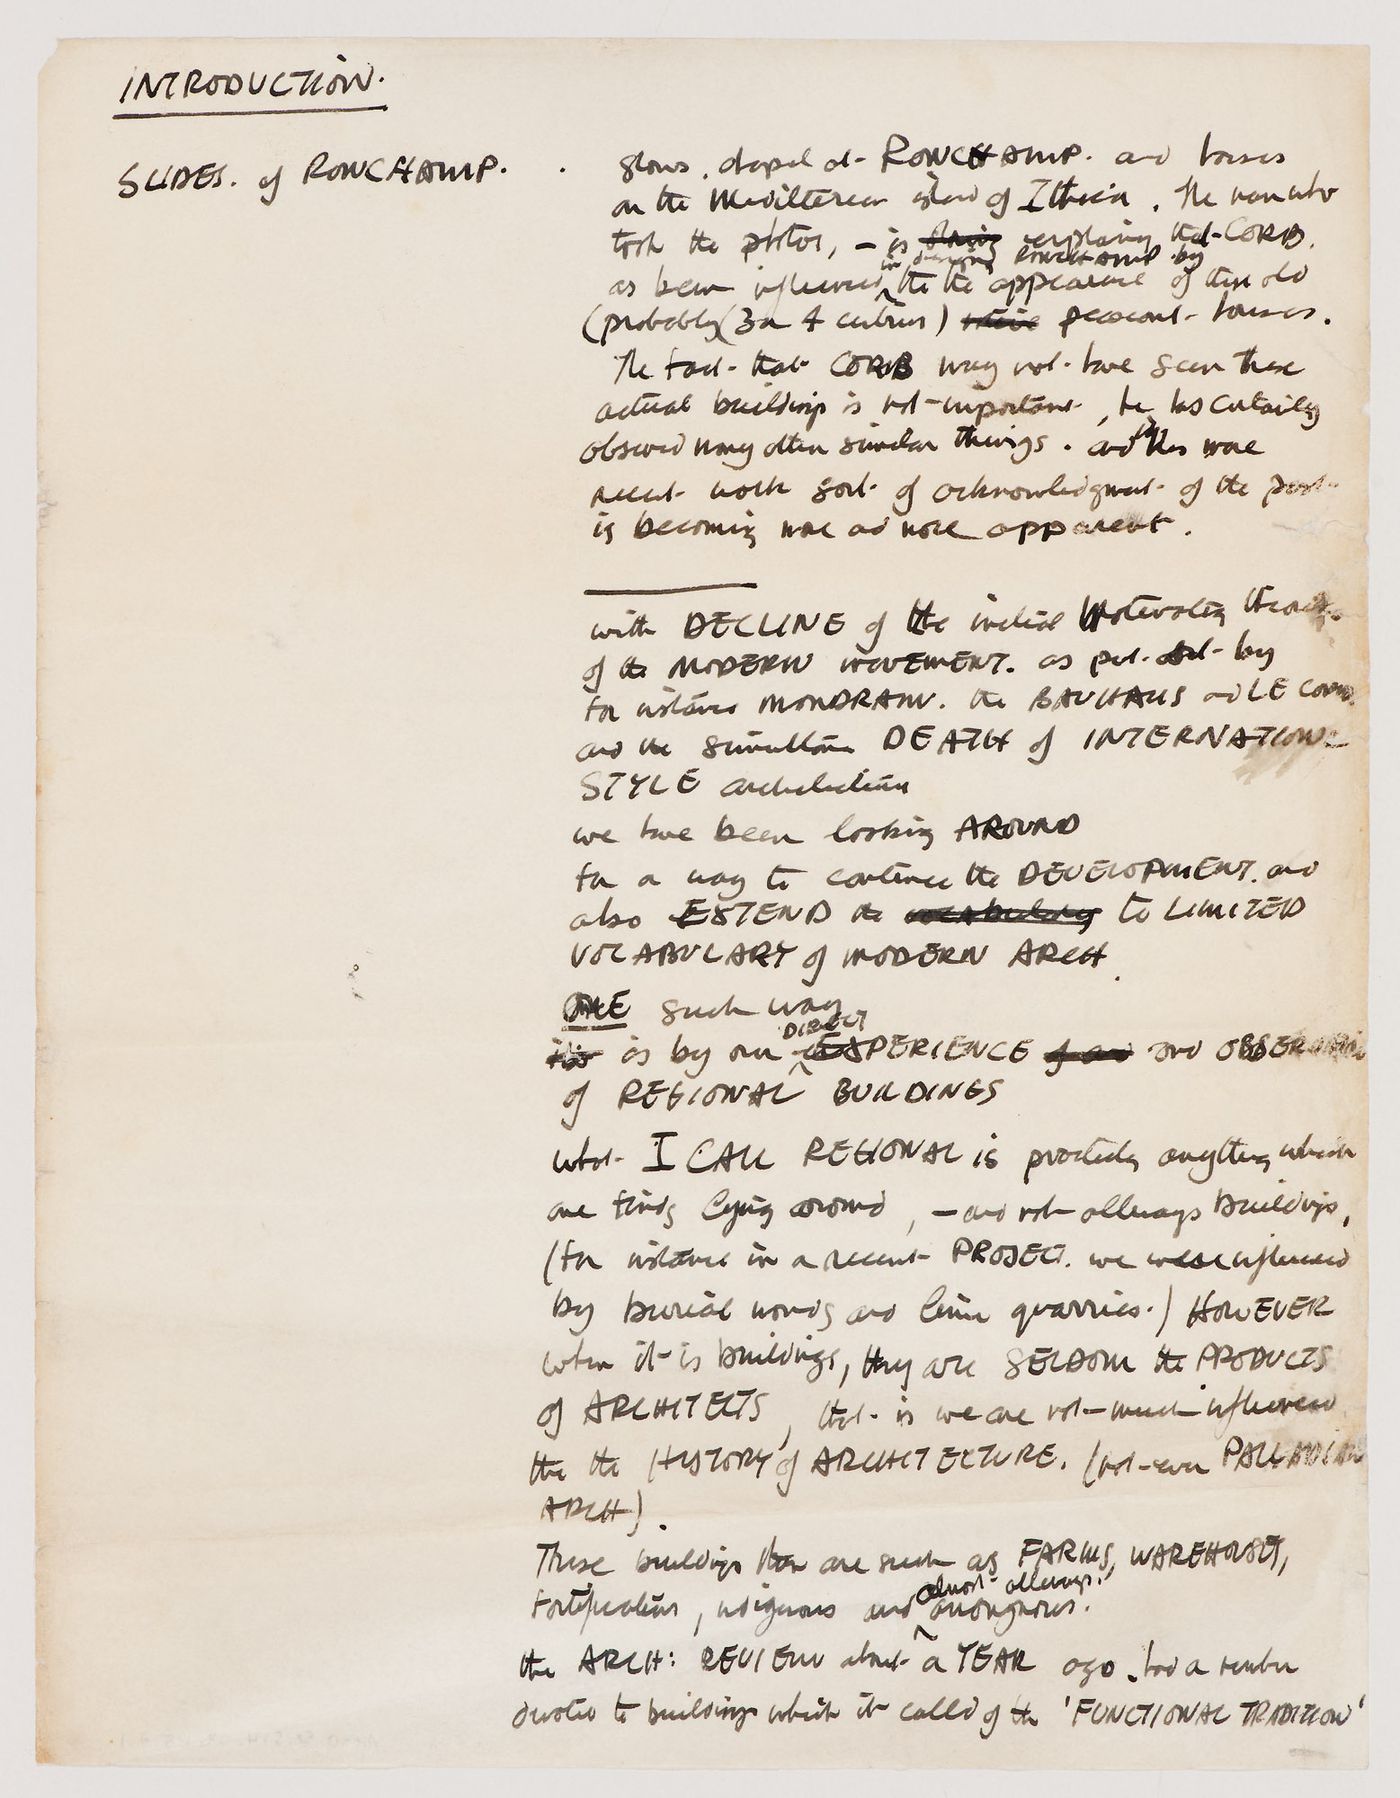 INTRODUCTION.
SLIDES. of RONCHAMP. .
Shows. chapel at RONCHAMP. and houses
on the Mediterean island of Ithica. The man who
took the photos, – is explaining that CORB.
as been influenced in designing RONCHAMP by the the appearance of these old
(probably (3 or 4 centuries) peasant houses.
The fact that CORB may not have seen these
actual buildings is not important, he has certainly
observed many other similar things. and in his more
recent work sort of acknowledgment of the past
is becoming more and more apparent.
with DECLINE of the initial Motivating theories
of the MODERN MOVEMENT. as put out by
for instance MONDRAIN. the BAUHAUS and LE CORB
and the simultane DEATH of INTERNATIONAL
STYLE architecture
we have been looking AROUND
for a way to continue the DEVELOPMENT. and
also EXTEND the to LIMITED
VOCABULARY of MODERN ARCH.
ONE such way
is by our DIRECT EXPERIENCE and OBSERVATION
of REGIONAL BUILDINGS
what I CALL REGIONAL is practically anything which
one finds lying around, – and not allways buildings,
(for instance in a recent PROJECT. we were influenced
by burial mounds and lime quarries.) HOWEVER
when it is buildings, they are SELDOM the PRODUCTS
of ARCHITECTS, that is we are not much influenced
the the HISTORY of ARCHITECTURE. (not even PALLADIAN
ARCH).
These buildings are such as FARMS, WAREHOUSES,
fortifications, indiginous and almost allways. anonymous.
the ARCH: REVIEW about a YEAR ago. had a number
devoted to buildings which it called of the 'FUNCTIONAL TRADITION'